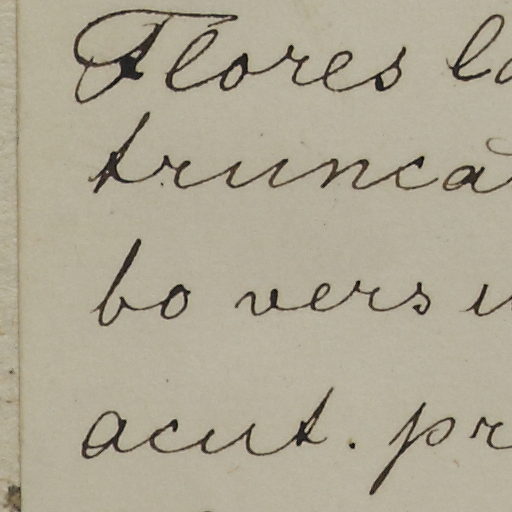 Flores
trunca
bo vers
acut. pr